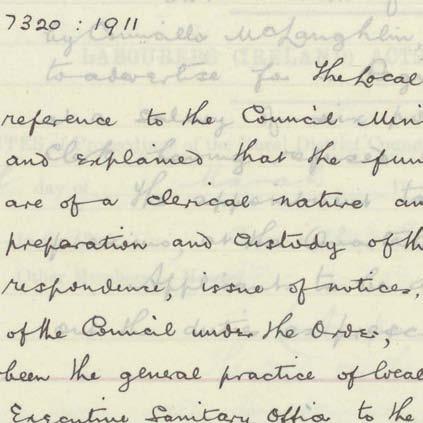 7320 : 1911
The Local
reference to the Council Min
and explained that the fun
are of a clerical nature an
preparation and custody of th
respondence, issue of notices,
of the Council under the Order,
been the general practice of local
Executive Sanitary Office to the